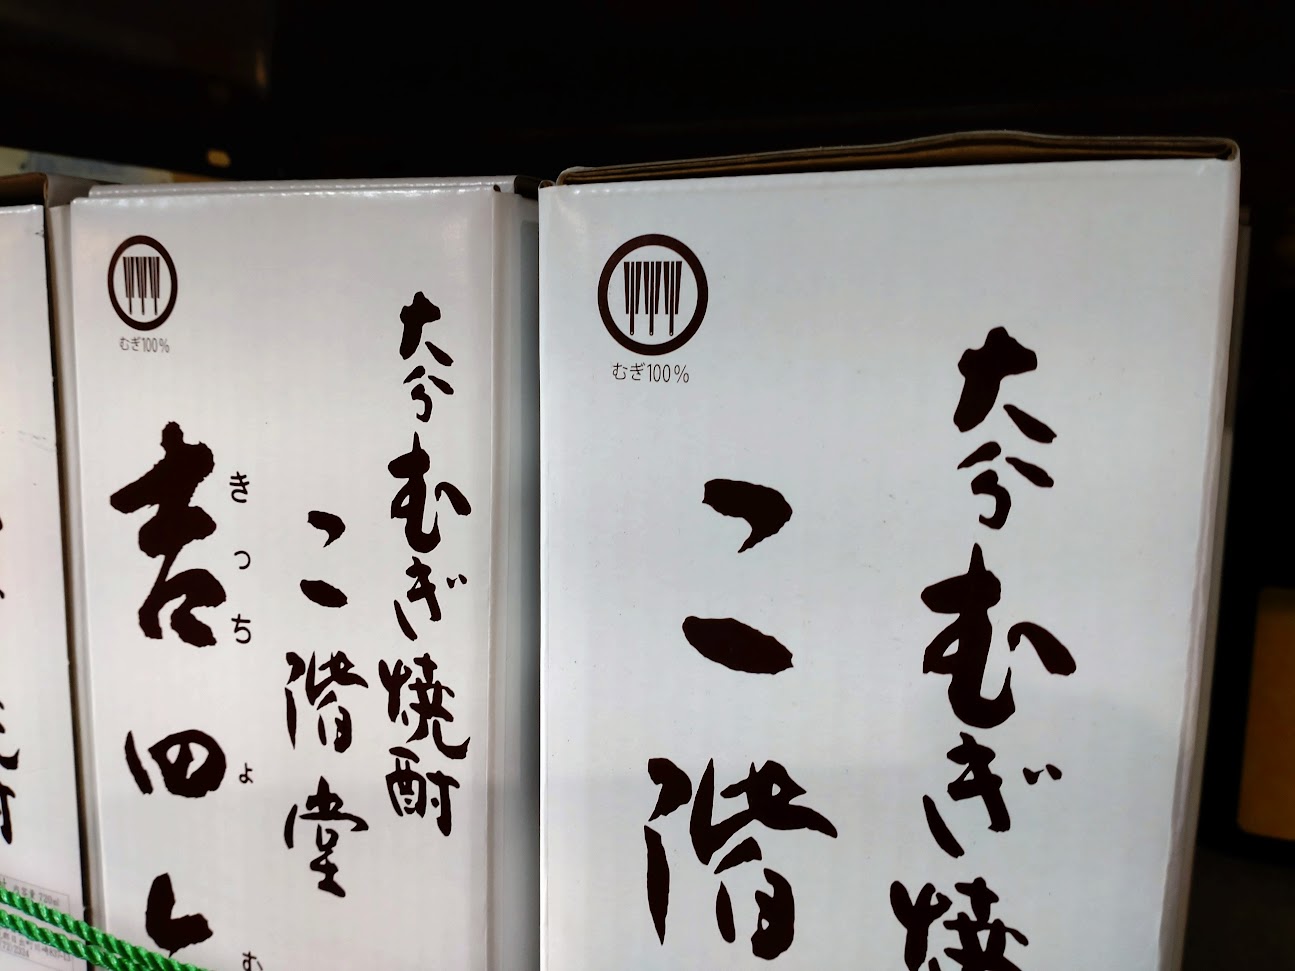 むぎ100%
大分むぎ焼酎
二階堂
吉四
きっちょむ
むぎ100%
大分むぎ焼
二階